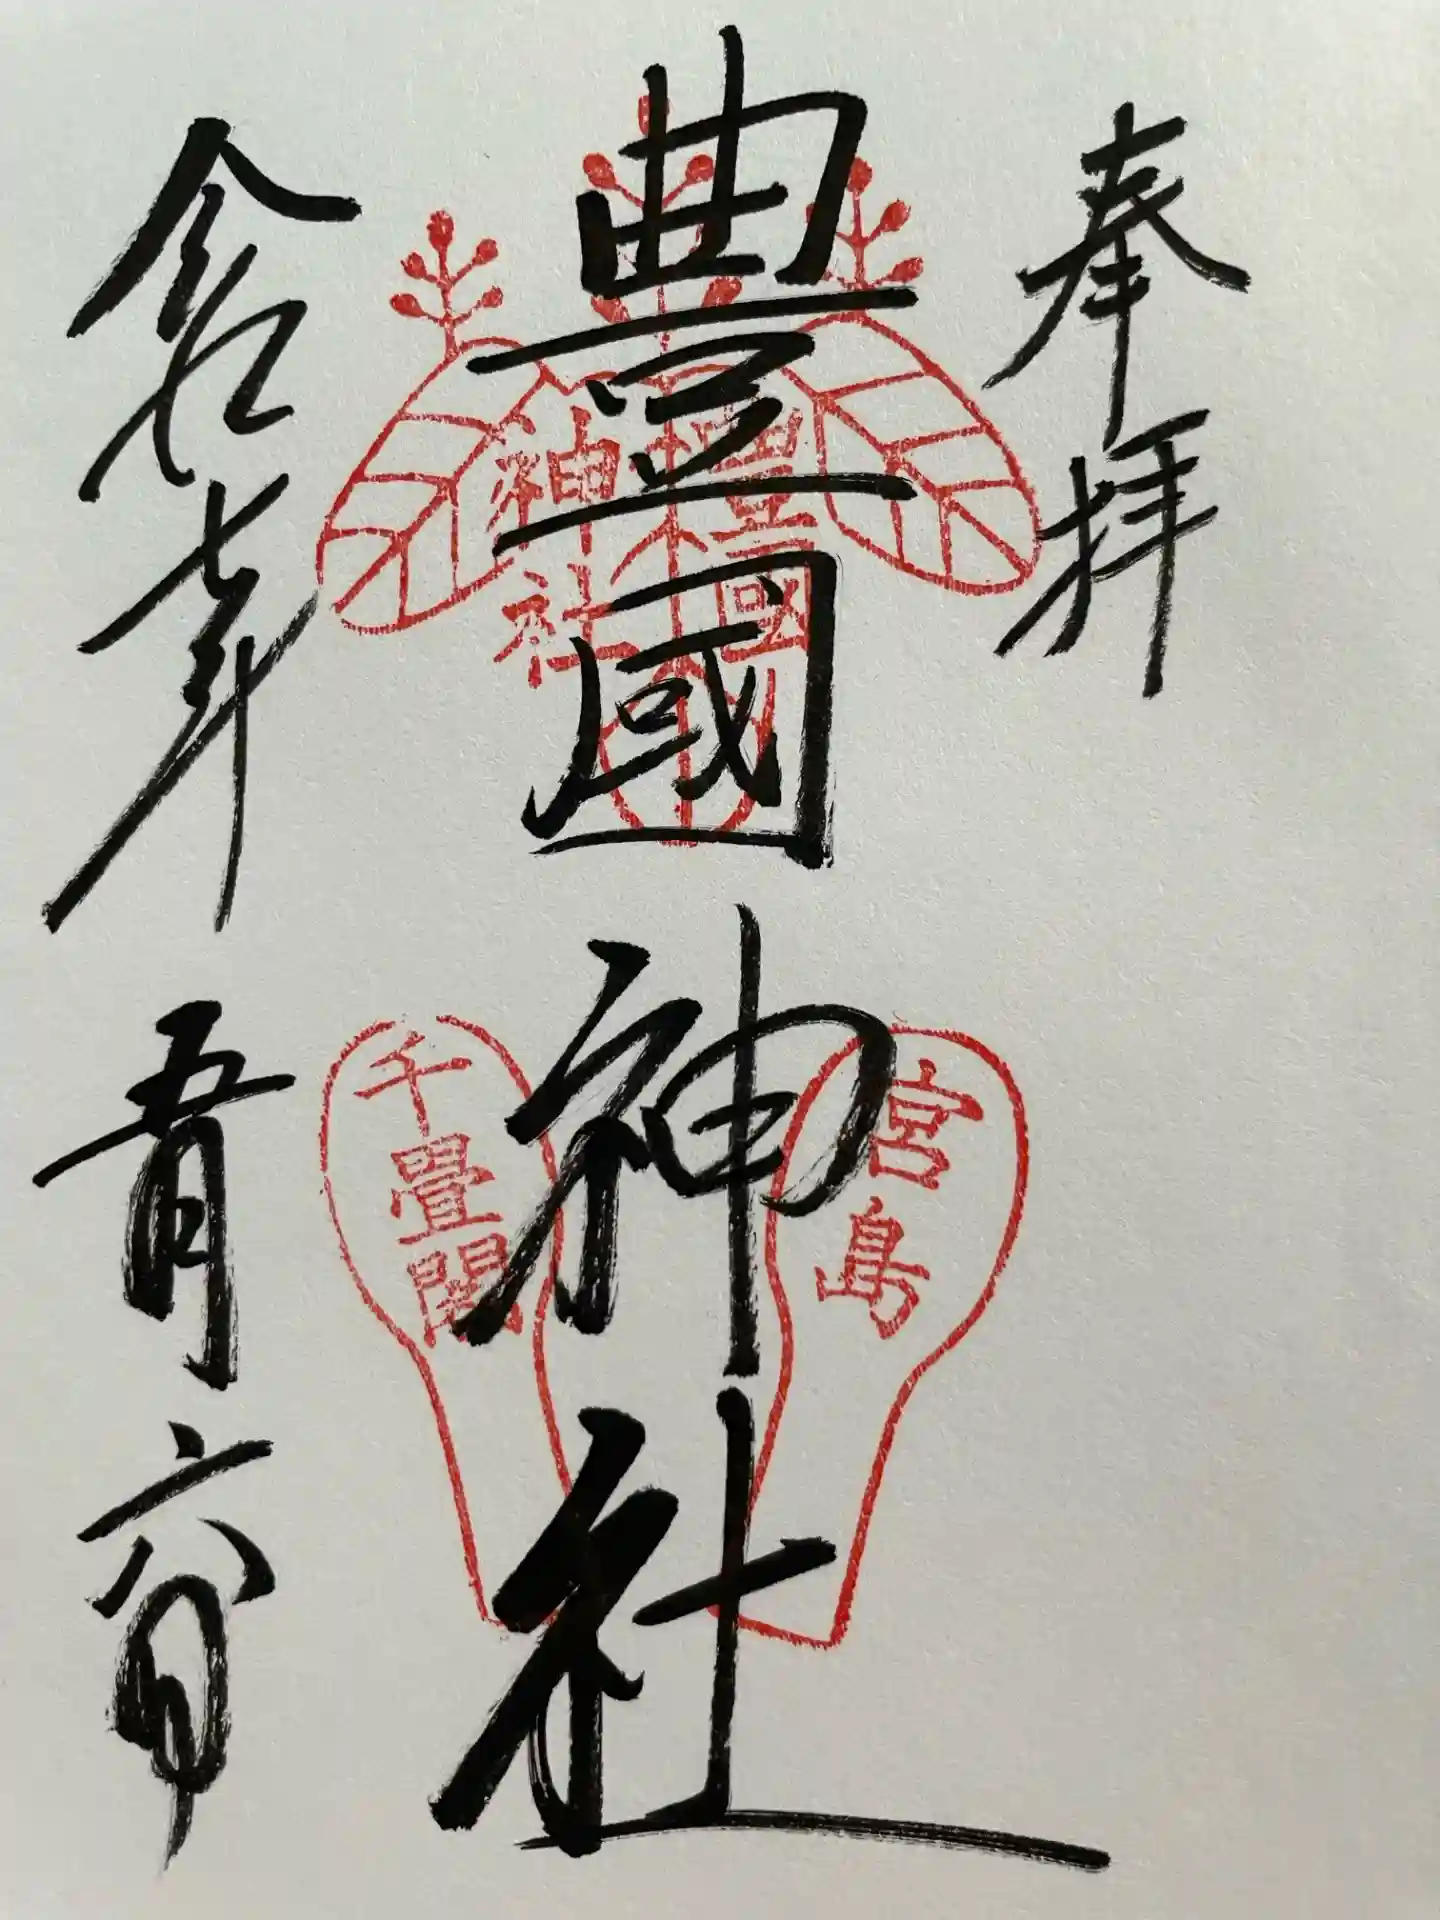 奉拝
豊國神社
令和七年五月六日
豊國
神社
宮島
千畳閣